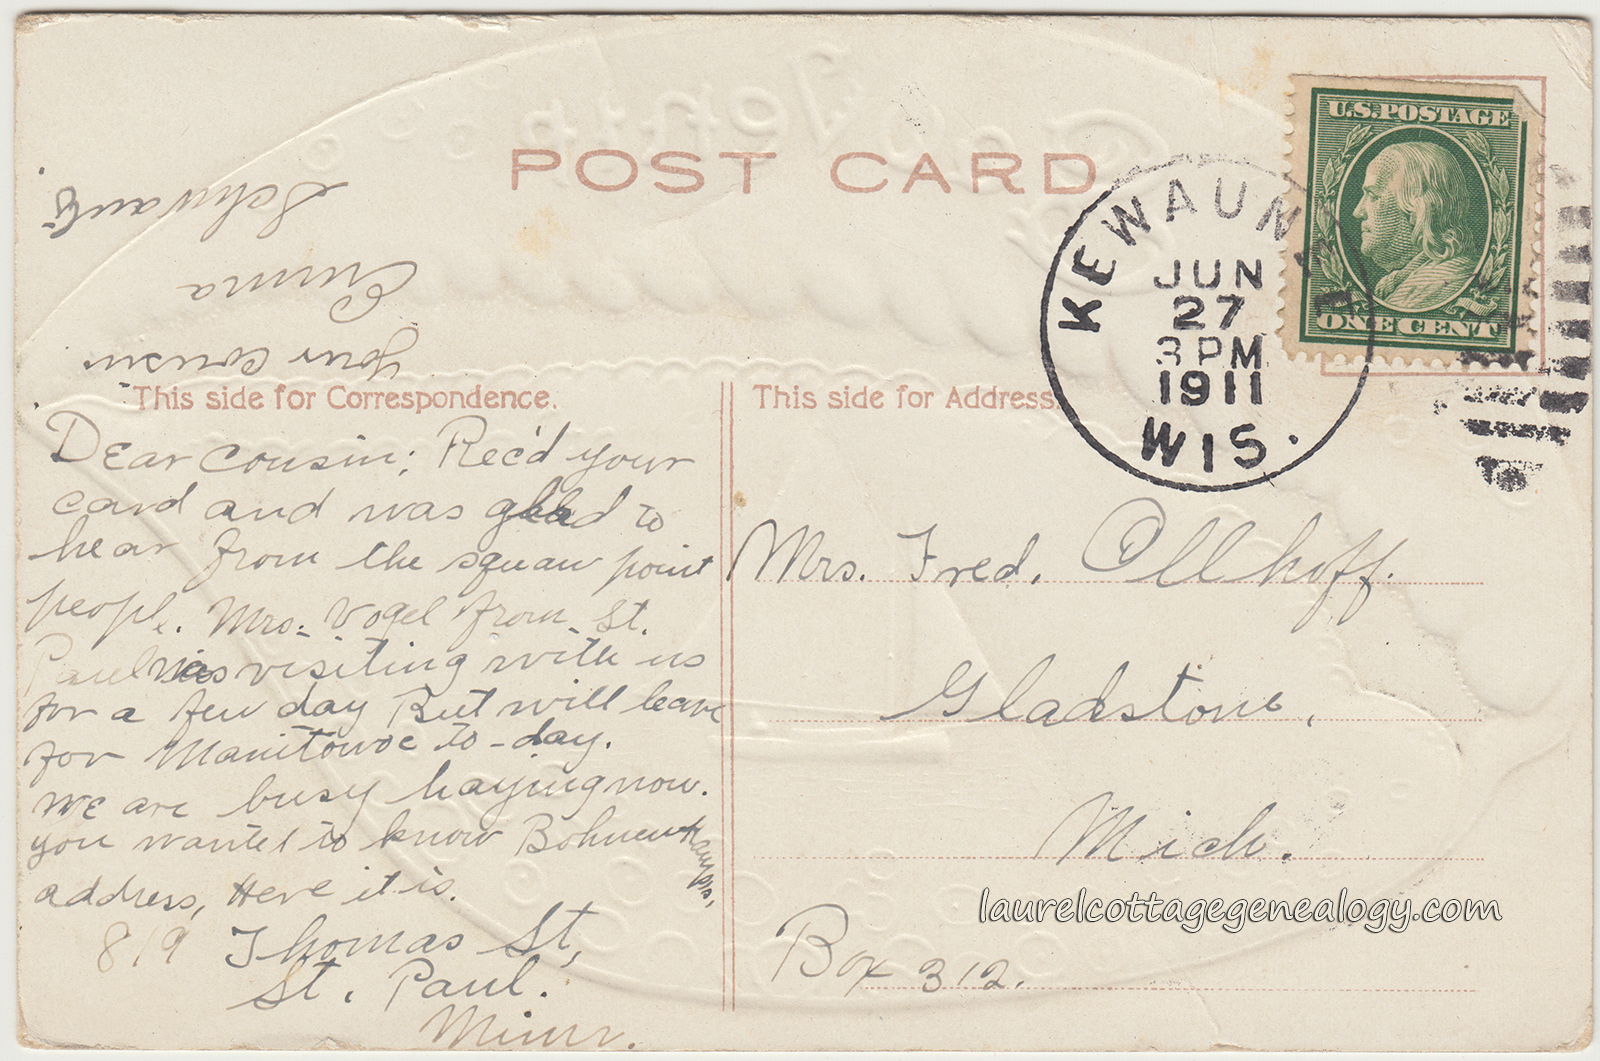 POST CARD
KEWAUNEE
JUN
27
3 PM
1911
WIS.
U.S. POSTAGE
ONE CENT
This side for Correspondence.
This side for Address.
Dear cousin; Rec'd your
card and was glad to
hear from the squaw point
people. Mrs. Vogel from St.
Paul was visiting with us
for a few day But will leave
for Manitowoc to-day.
We are busy haying now.
you wanted to know Bohnenkamps,
address, Here it is.
819 Thomas St,
St. Paul.
Minn.
your cousin
Emma
Schwantz
Mrs. Fred. Ollhoff.
Gladstone,
Mich.
Box 312.
laurelcottagegenealogy.com